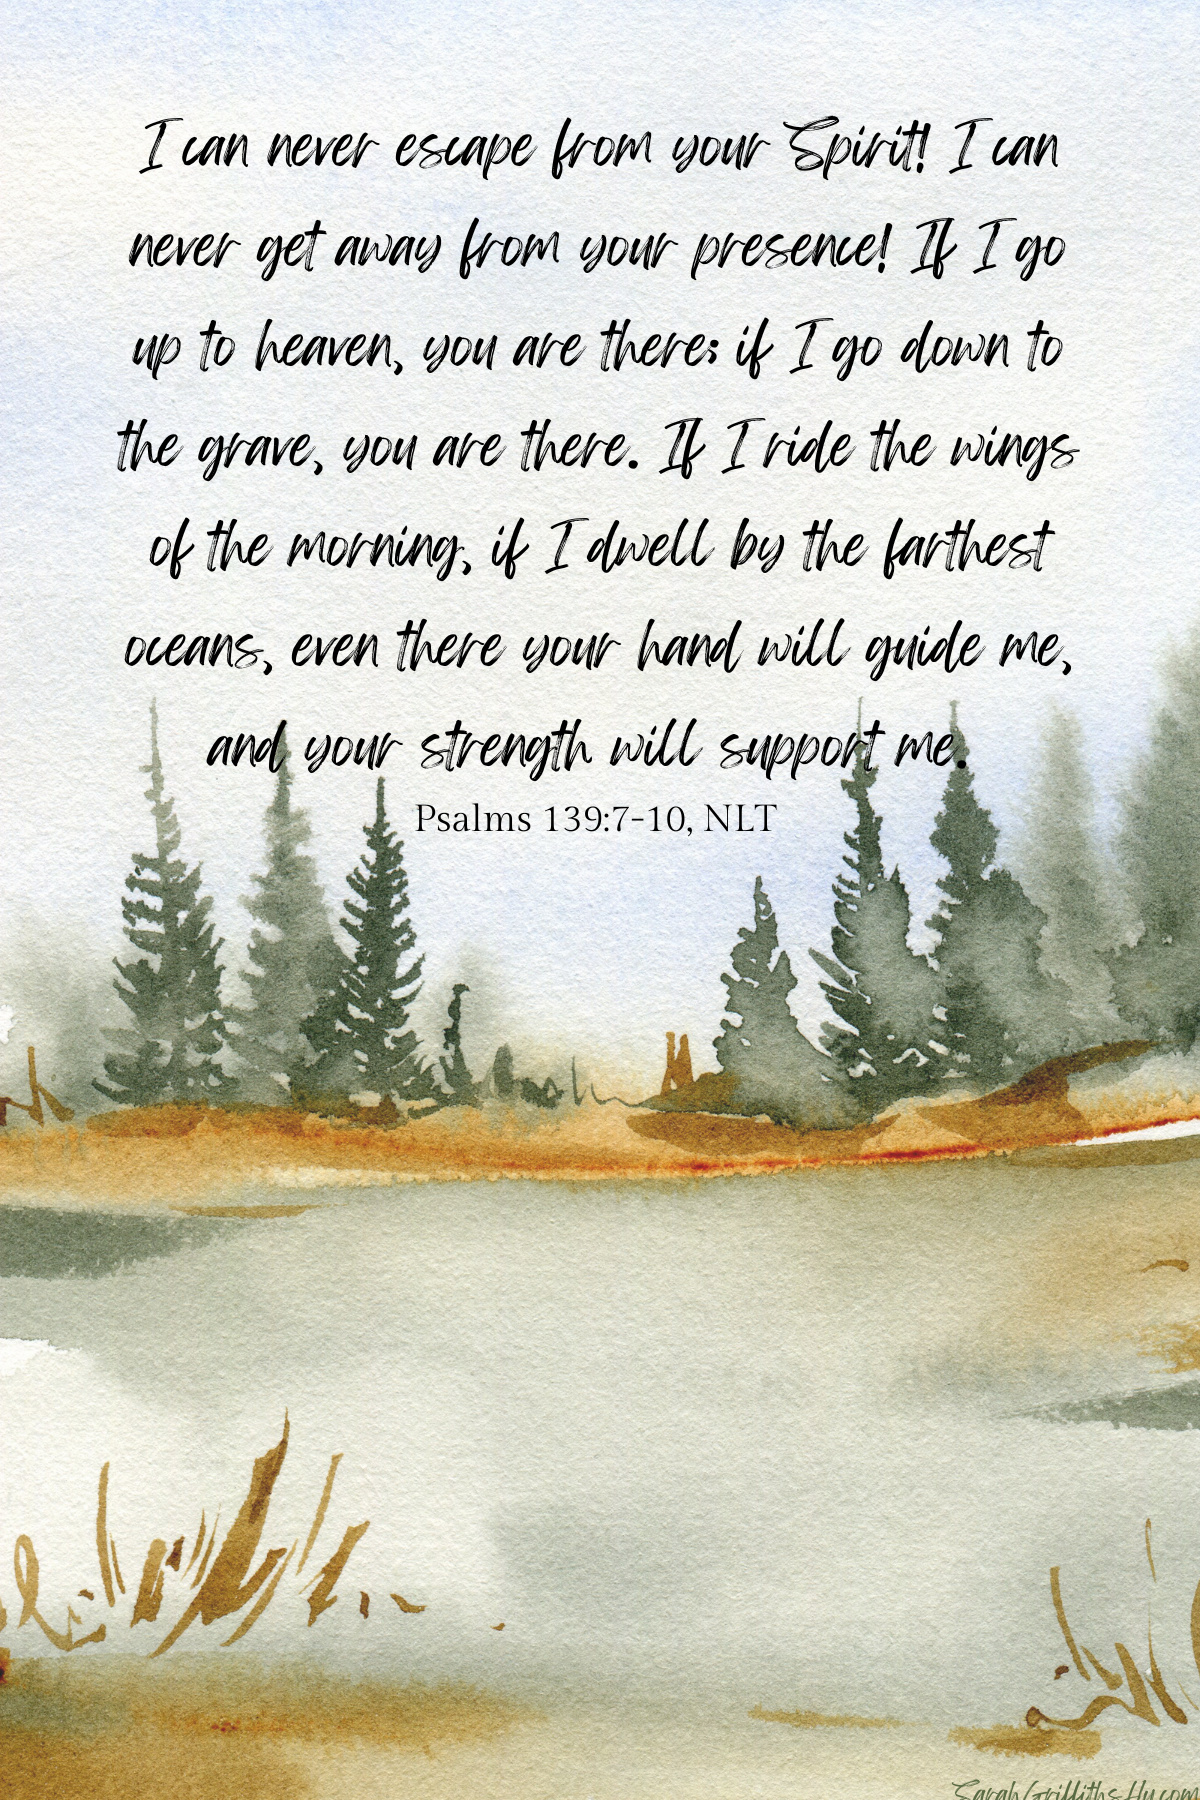 I can never escape from your Spirit! I can
never get away from your presence! If I go
up to heaven, you are there; if I go down to
the grave, you are there. If I ride the wings
of the morning, if I dwell by the farthest
oceans, even there your hand will guide me,
and your strength will support me.
Psalms 139:7-10, NLT